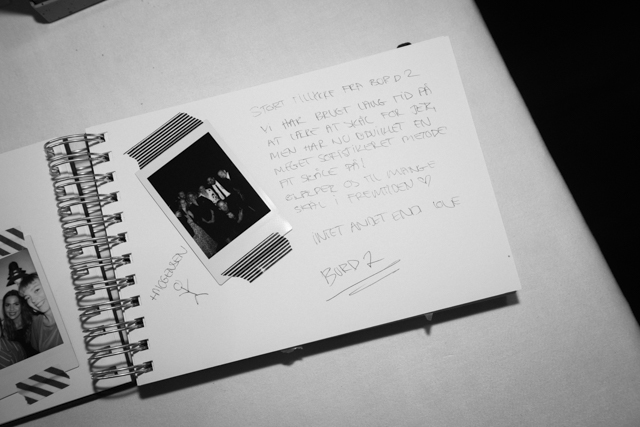 STORT TILLYKKE FRA BORD 2
VI HAR BRUGT LANG TID PÅ
AT LÆRE AT SKÅL FOR JER,
MEN HAR NU UDVIKLET EN
MEGET SOFISTIKERET METODE
AT SKÅLE PÅ!
GLÆDER OS TIL MANGE
SKÅL I FREMTIDEN
INTET ANDET END LOVE
BORD 2